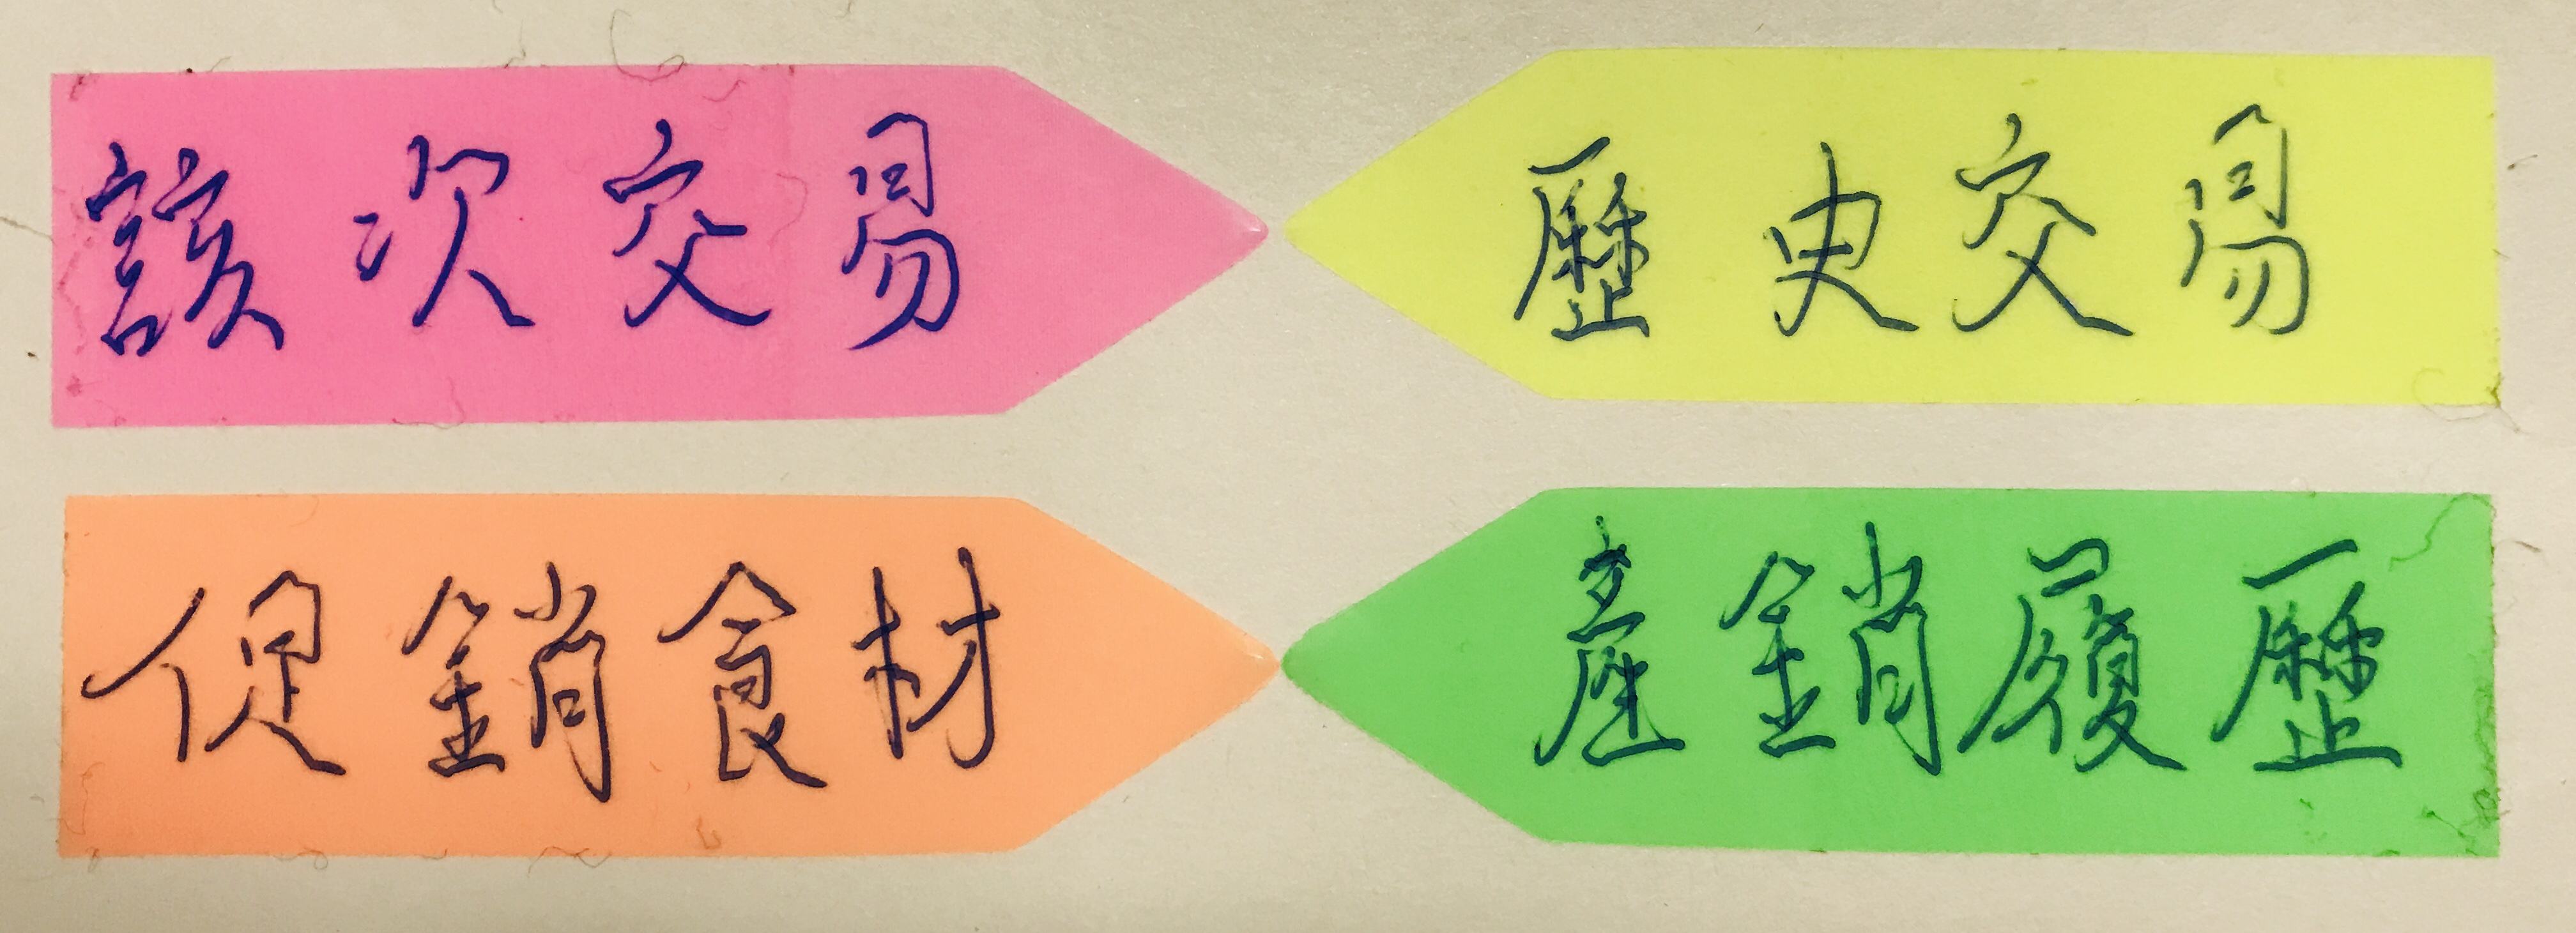 該次交易
歷史交易
促銷食材
產銷履歷